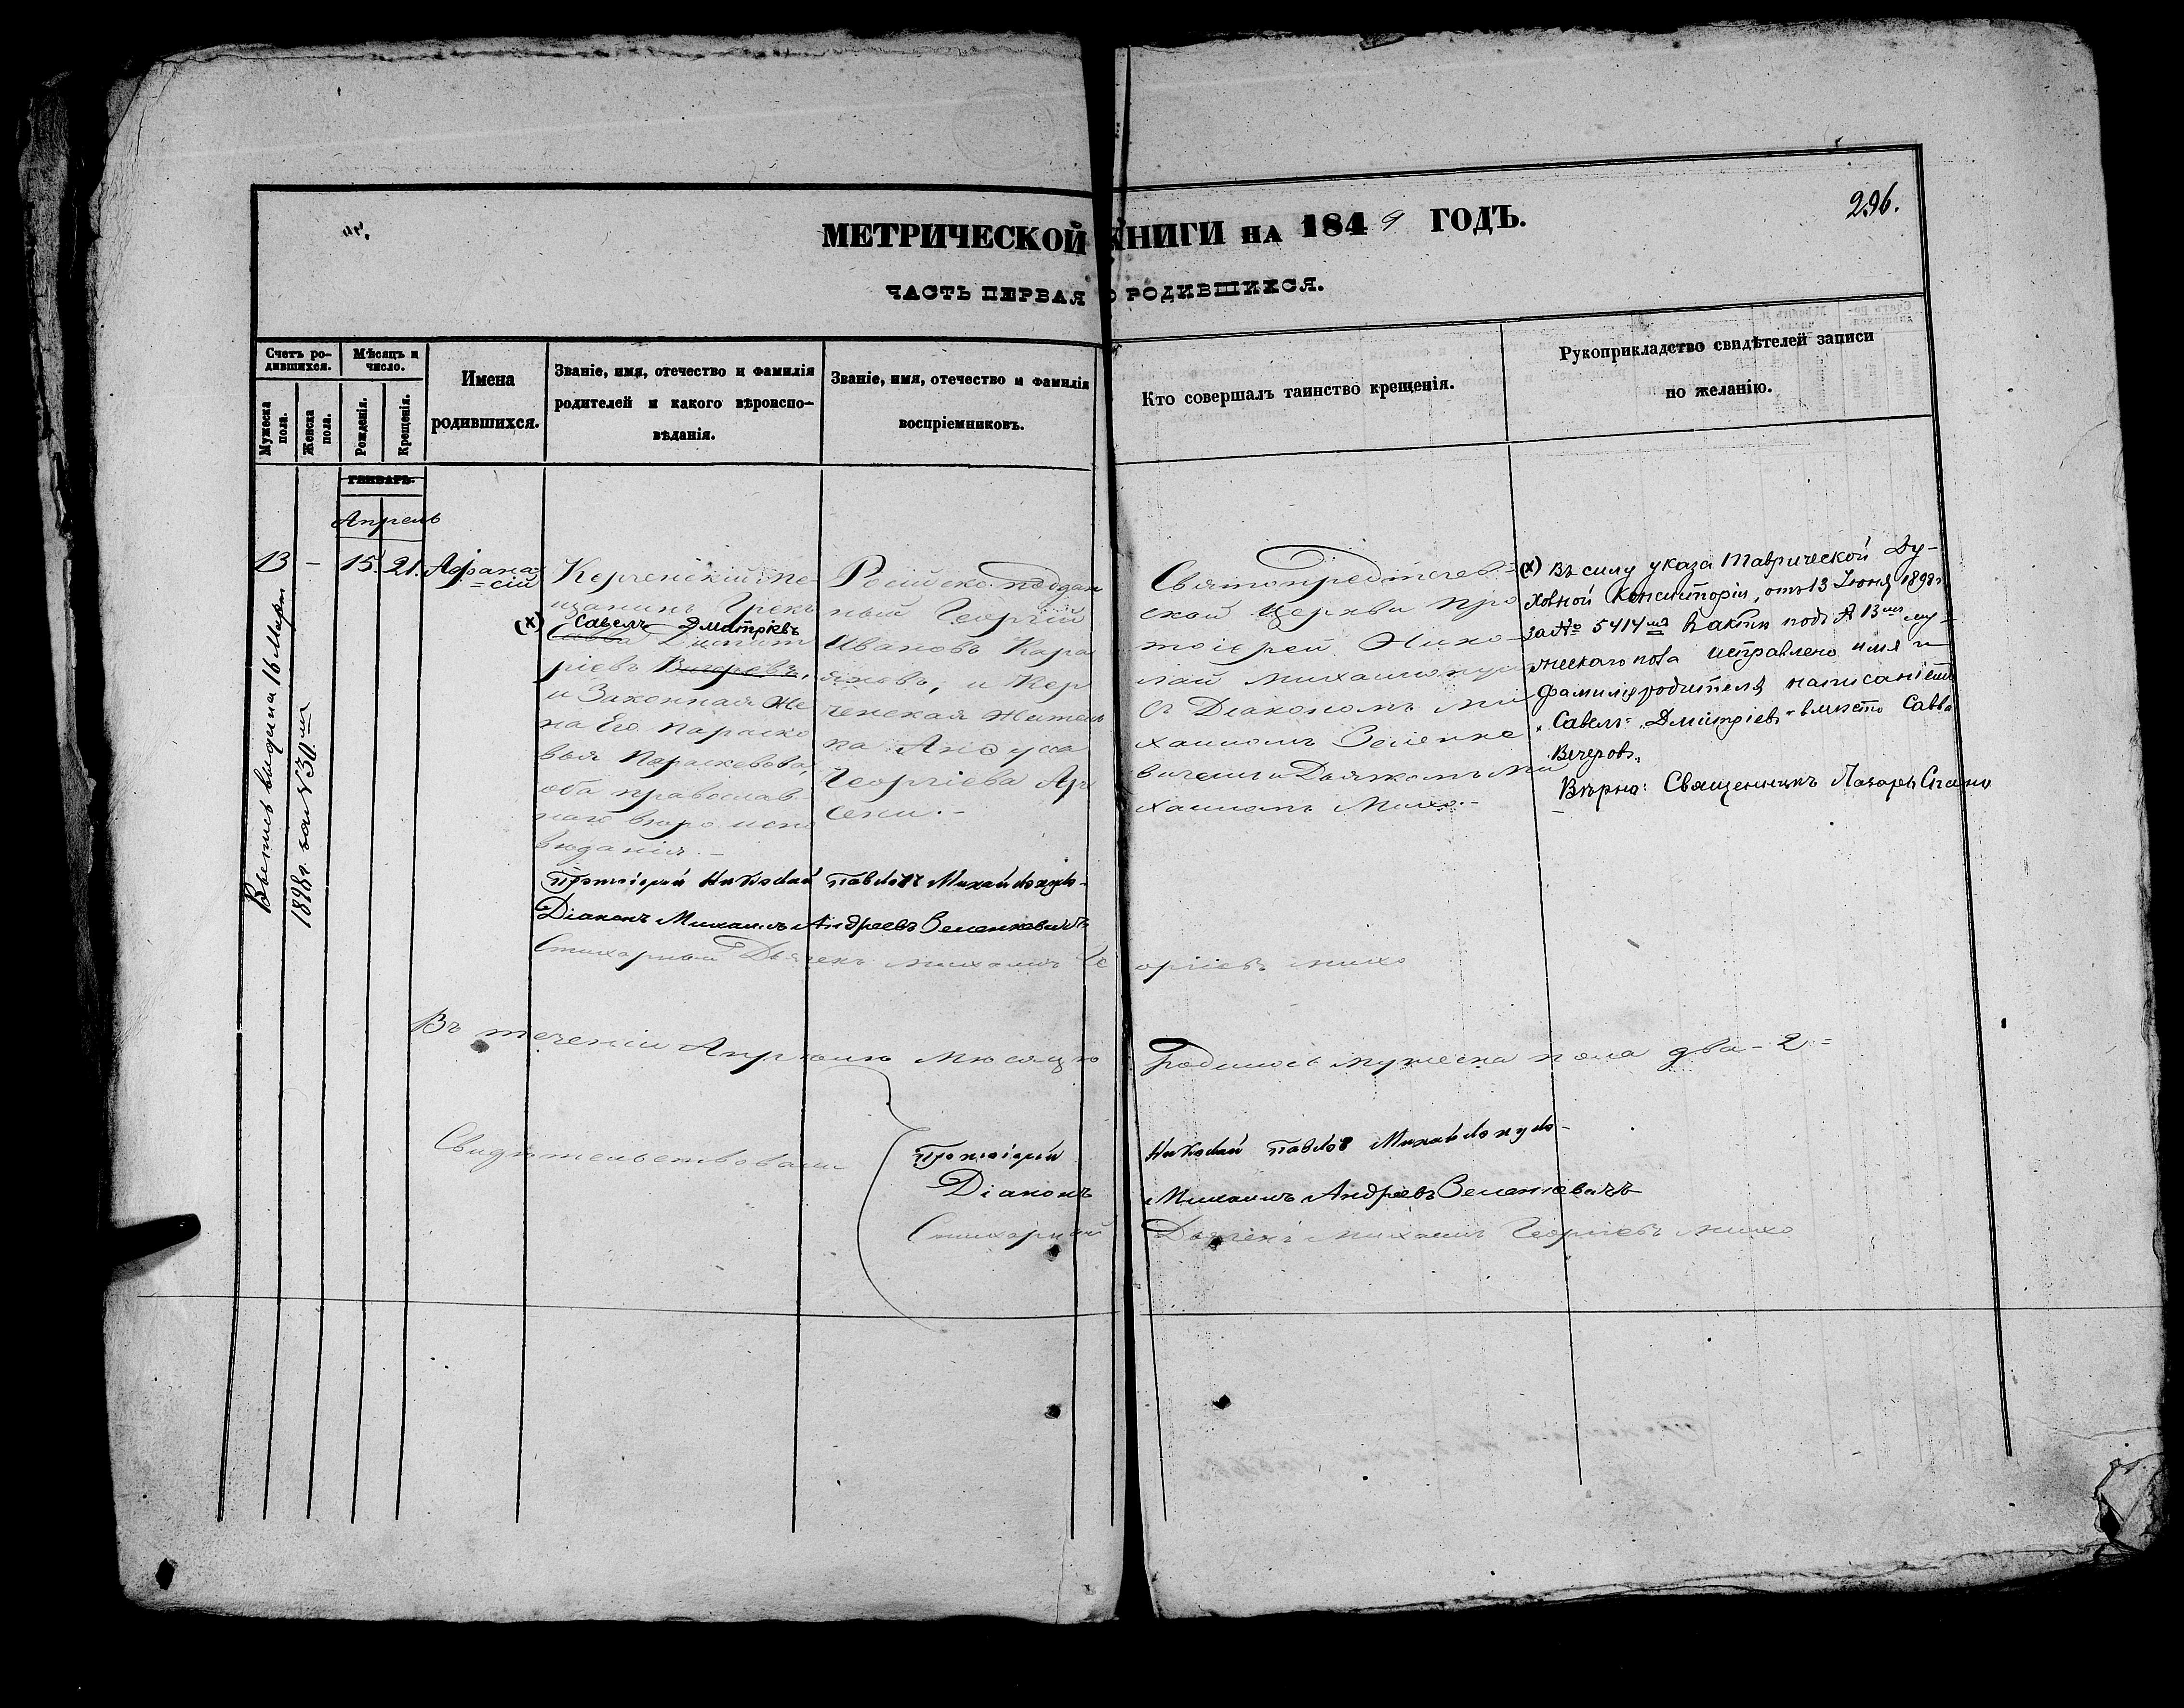 296.
МЕТРИЧЕСКОЙ КНИГИ на 1849 ГОДЪ.
ЧАСТЬ ПЕРВАЯ О РОДИВШИХСЯ.
Счетъ ро-
дившихся.
Мужеска
пола.
Женска
пола.
Мѣсяцъ и
число.
Рожденія.
Крещенія.
Имена
родившихся.
Званіе, имя, отечество и фамилія
родителей и какого вѣроиспо-
вѣданія.
Званіе, имя, отечество и фамилія
воспріемниковъ.
Кто совершалъ таинство крещенія.
Рукоприкладство свидѣтелей записи
по желанію.
ГЕНВАРЬ.
Апрель
13 - 15. 21. Афана-
=сій
Керченскій ме-
щанинъ Грекъ
(х) Савелъ Дмитріевъ
Савва Димит
ріевъ Вечеровъ,
и Законная Же
на Его Параско
вья Параскевова,
оба православ-
наго вѣро испо
вѣданія.-
Російско-поддан
ный Георгій
Ивановъ Кара
, и Кер
ченская Житель
ка
Георгіева Ар
сени.-
Святопредтечев=
ской Церкви Про
тоіерей Нико-
лай Михайлопуло
съ Діакономъ Ми
хаиломъ Зеленке
вичемъ и Дьячкомъ Ми
хаиломъ Михо.-
(х) Въ силу указа Таврической Ду-
ховной Консисторіи, отъ 13 Іюня 1898 г.
за № 5414мъ в актѣ подъ № 13мъ му-
жескаго пола исправлено имя и
фамилія родителя написаніемъ
"Савелъ" "Дмитріевъ" вмѣсто Савва
Вечеровъ.
Вѣрно: Священникъ Лазарь
Выпись выдана 16 Марта
1898 г. за № 30мъ
Протоіерей Николай Павловъ Михайлопуло-
Діаконъ Михаилъ Андреевъ Зеленкевичъ
Стихарный Дьячекъ Михаилъ Георгіевъ Михо
Въ теченіи Апрѣлѣ Мѣсяцѣ родилось мужеска пола два-2=
Свидѣтельствовали
Протоіерей Николай Павловъ Михайлопуло-
Діаконъ Михаилъ Андреевъ Зеленкевичъ
Стихарный Дьячекъ Михаилъ Георгіевъ Михо